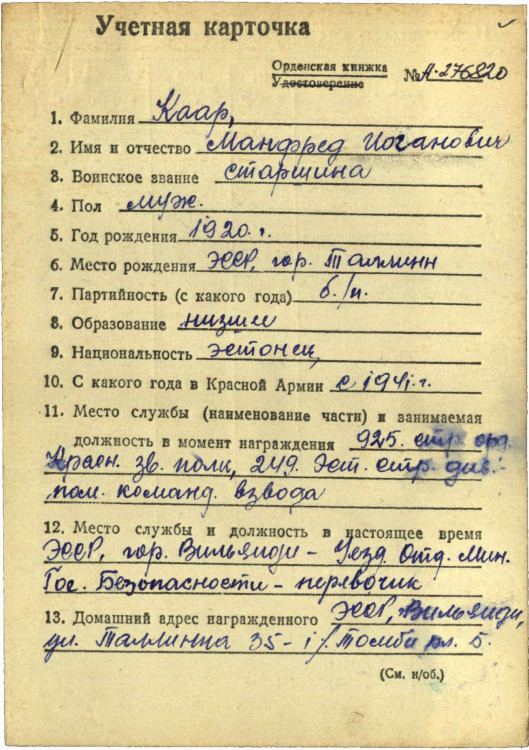 Учетная карточка
Орденская книжка
Удостоверение
№ А-276820
1. Фамилия Каар,
2. Имя и отчество Манфред Иоганович
3. Воинское звание старшина
4. Пол муж.
5. Год рождения 1920. г.
6. Место рождения ЭССР, гор. Таллинн
7. Партийность (с какого года) б./п.
8. Образование низшее
9. Национальность эстонец,
10. С какого года в Красной Армии с 1941. г.
11. Место службы (наименование части) и занимаемая
должность в момент награждения 925. стр. орд.
Красн. зв. полк, 249. Эст. стр. див.-
пом. команд. взвода
12. Место службы и должность в настоящее время
ЭССР, гор. Вильянди - Уезд. Отд. Мин.
Гос. Безопасности - перевочик
13. Домашний адрес награжденного ЭССР, Вильянди,
ул. Таллинна 35-1/Томби 5.
(См. н/об.)